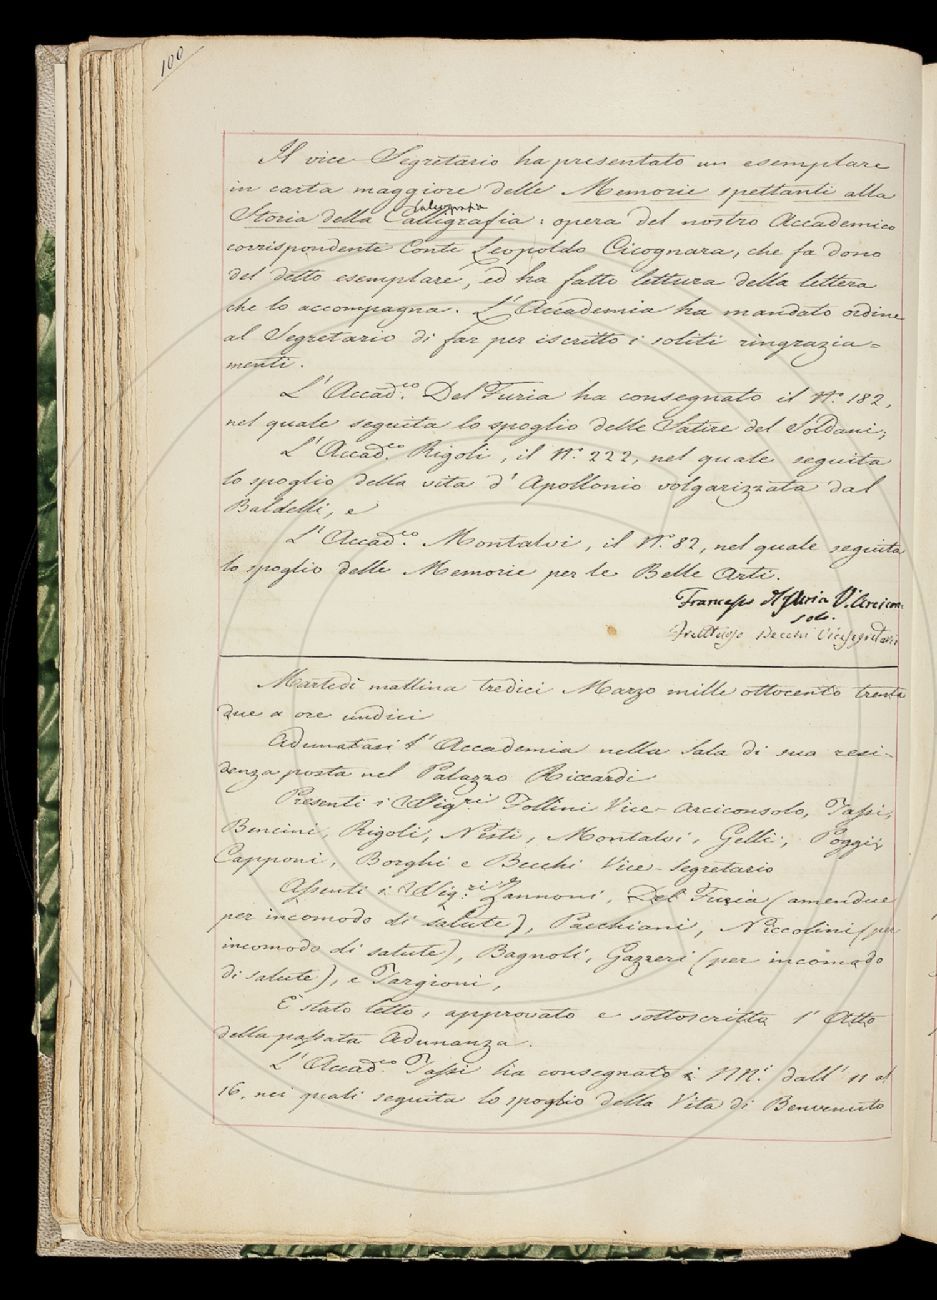 100
Il vice Segretario ha presentato un esemplare
in carta maggiore delle Memorie spettanti alla
Calcografia
Storia della Calligrafia: opera del nostro Accademico
corrispondente Conte Leopoldo Cicognara, che fa dono
del detto esemplare, ed ha fatto lettura della lettera
che lo accompagna. L'Accademia ha mandato ordine
al Segretario di far per iscritto i soliti ringrazia=
menti.
L'Accad.co Del Furia ha consegnato il N.o 182,
nel quale seguita lo spoglio delle Satire del Soldani;
L'Accad.co Rigoli, il N.o 222, nel quale seguita
lo spoglio della vita d'Apollonio volgarizzata dal
Baldelli, e
L'Accad.co Montalvi, il N.o 82, nel quale seguita
lo spoglio delle Memorie per le Belle Arti.
Francesco Del Furia V. Arcicon-
solo.
Fruttuoso Becchi Vicesegretario
Martedì mattina tredici Marzo mille ottocento trenta
due a ore undici
Adunatasi l'Accademia nella Sala di sua resi-
denza posta nel Palazzo Riccardi
Presenti i SSig.ri Follini Vice-arciconsolo, Tassi,
Bencini, Rigoli, Nesti, Montalvi, Gelli, Poggi,
Capponi, Borghi e Becchi Vice-segretario
Assenti i SSig.ri Zannoni, Del Furia (amendue
per incomodo di salute), Pacchiani, Niccolini (per
incomodo di salute), Bagnoli, Gazzeri (per incomodo
di salute), e Targioni,
È stato letto, approvato e sottoscritto l'Atto
della passata Adunanza.
L'Accad.co Tassi ha consegnato i NN.i dall'11 al
16, nei quali seguita lo spoglio della Vita di Benvenuto